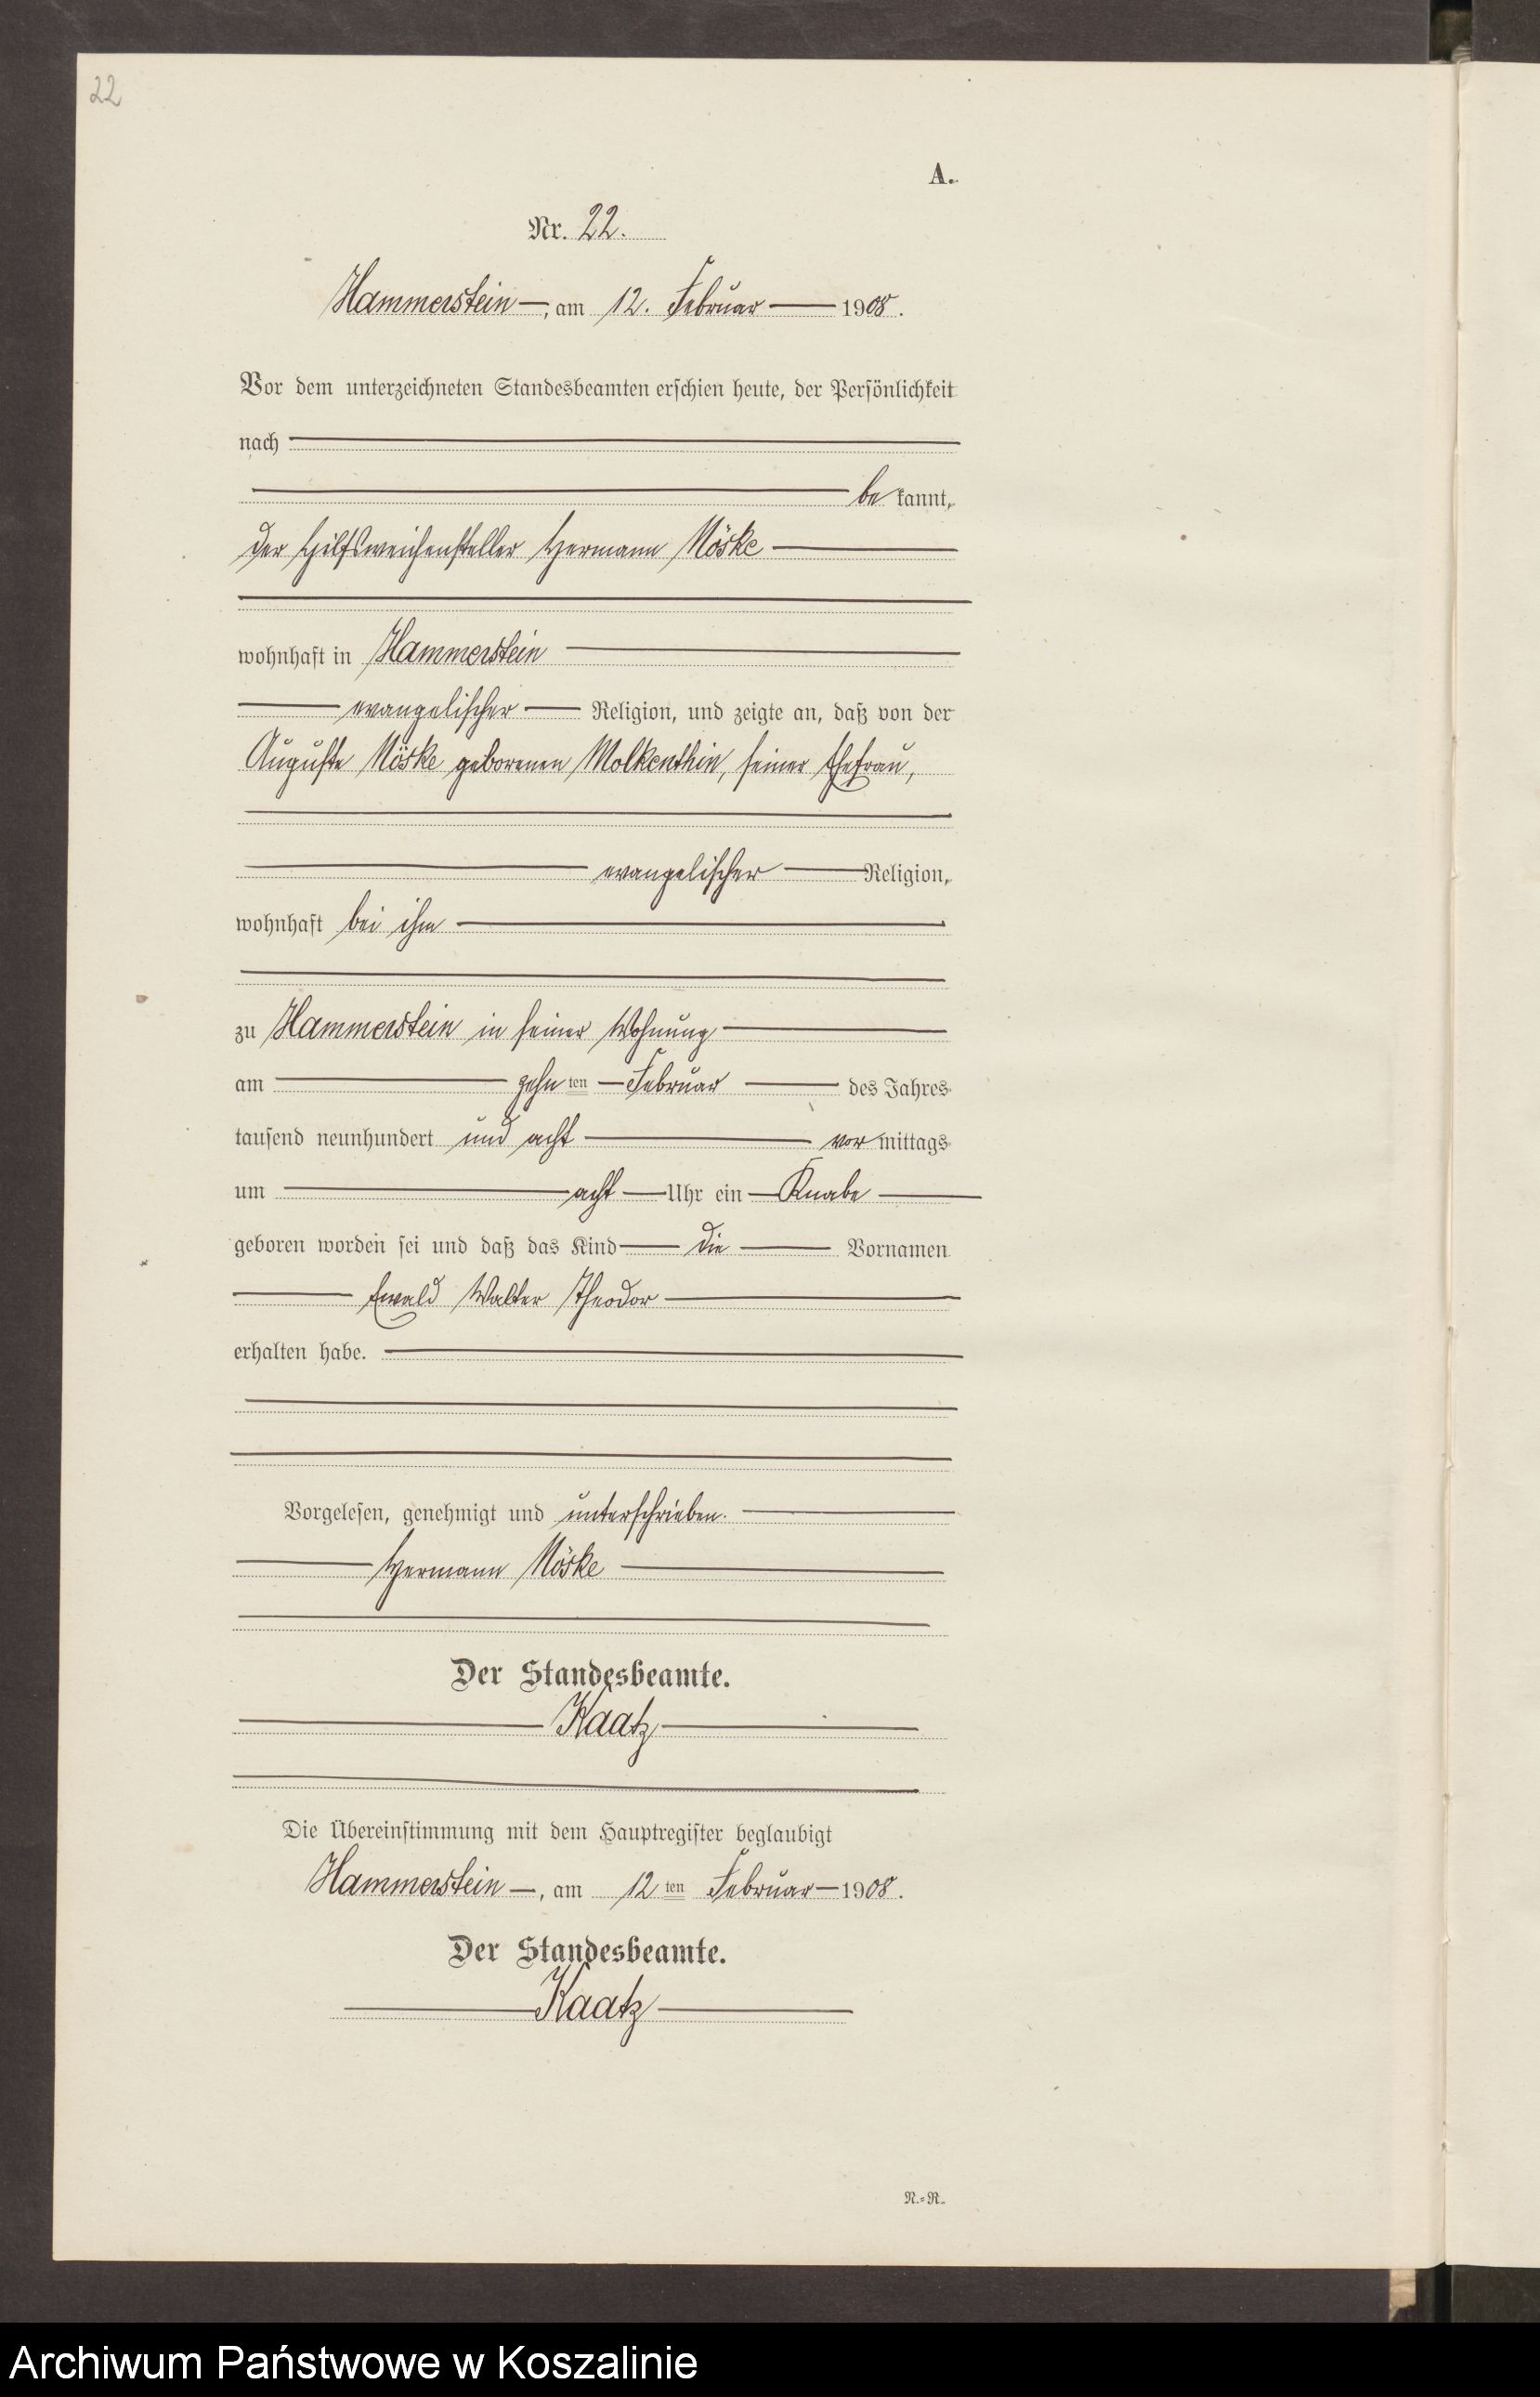 22
A.
Nr. 22.
Hammerstein, am 12. Februar 1908.
Vor dem unterzeichneten Standesbeamten erschien heute, der Persönlichkeit
nach
be kannt,
der Hilfsweichensteller Hermann Möske
wohnhaft in Hammerstein
evangelischer Religion, und zeigte an, daß von der
Auguste Möske geborenen Molkenthin, seiner Ehefrau,
evangelischer Religion,
wohnhaft bei ihm
zu Hammerstein in seiner Wohnung
am zehn ten Februar des Jahres
tausend neunhundert und acht vor mittags
um acht Uhr ein Knabe
geboren worden sei und daß das Kind die Vornamen
Ewald Walter Theodor
erhalten habe.
Vorgelesen, genehmigt und unterschrieben.
Hermann Möske
Der Standesbeamte.
Kaatz
Die Übereinstimmung mit dem Hauptregister beglaubigt
Hammerstein, am 12 ten Februar 1908.
Der Standesbeamte.
Kaatz
N.=R.
Archiwum Państwowe w Koszalinie